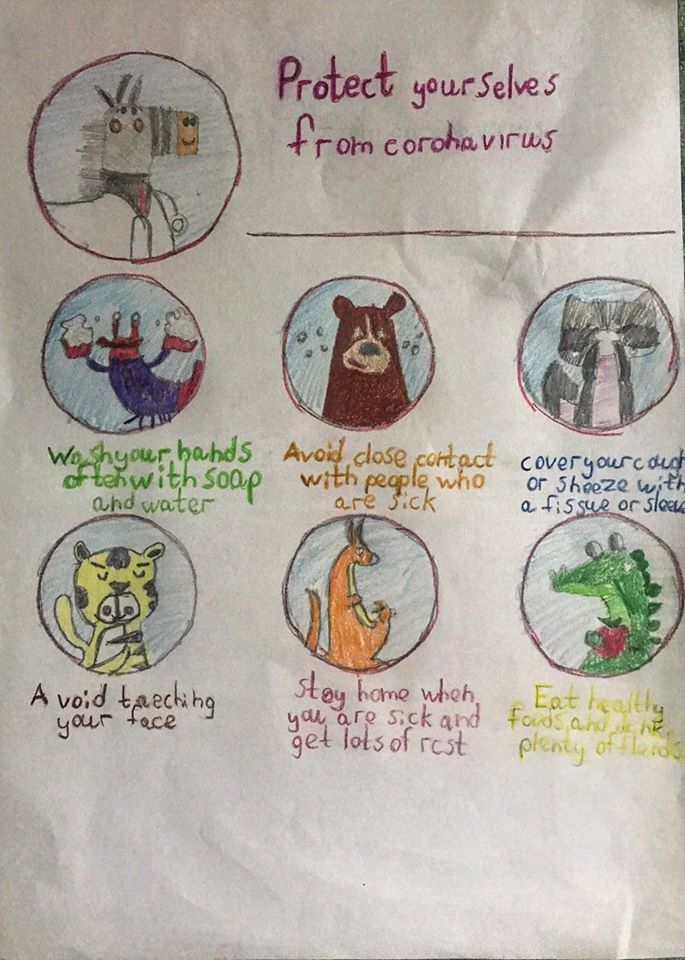 Protect yourselves
from coronavirus
Wash your hands
often with soap
and water
Avoid close contact
with people who
are sick
cover your
or sneeze with
a tissue or
Avoid taeching
your face
Stay home when
you are sick and
get lots of rest
Eat healthy
foods and
plenty of